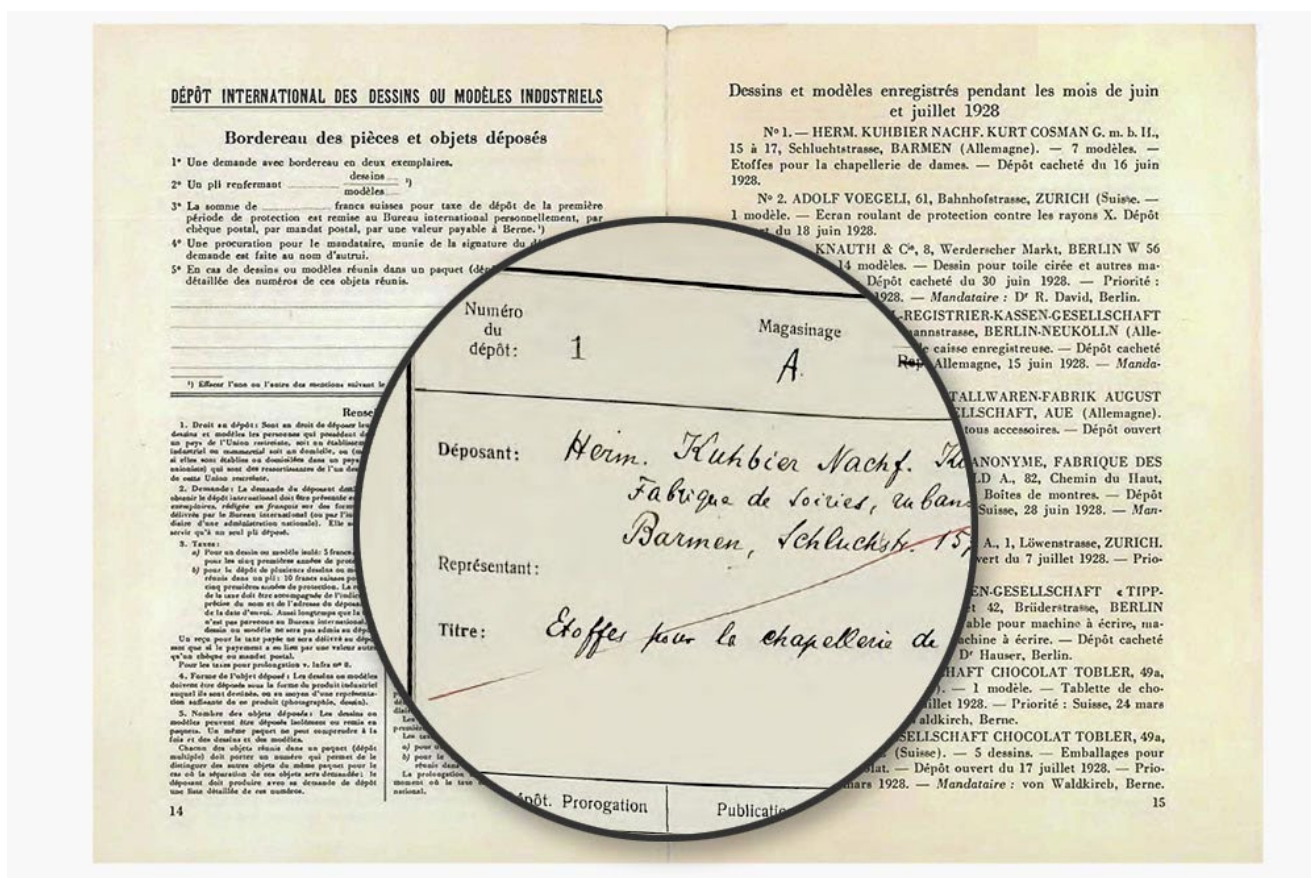 DÉPÔT INTERNATIONAL DES DESSINS OU MODÈLES INDUSTRIELS
Bordereau des pièces et objets déposés
1° Une demande avec bordereau en deux exemplaires.
2° Un pli renfermant dessins ¹)
modèles
3° La somme de francs suisses pour taxe de dépôt de la première
période de protection est remise au Bureau international personnellement, par
chèque postal, par mandat postal, par une valeur payable à Berne.¹)
4° Une procuration pour le mandataire, munie de la signature du
demande est faite au nom d'autrui.
5° En cas de dessins ou modèles réunis dans un paquet
détaillée des numéros de ces objets réunis.
¹) Effacer l'une ou l'autre des mentions suivant le
1. Droit au dépôt: Sont en droit de déposer
dessins et modèles les personnes qui possèdent
un pays de l'Union restreinte, soit un
industriel ou commercial soit un domicile, ou
si elles sont établies ou domiciliées dans un pays
unioniste) qui sont des ressortissants de l'un
de cette Union restreinte.
2. Demande: La demande du déposant
obtenir le dépôt international doit être présentée
exemplaires, rédigée en français sur des
délivrés par le Bureau international (ou par
diaire d'une administration nationale). Elle
servir qu'à un seul pli déposé.
3. Taxes:
a) Pour un dessin ou modèle isolé: 5 francs
pour les cinq premières années de
b) pour le dépôt de plusieurs dessins ou
réunis dans un pli: 10 francs suisses
cinq premières années de protection. La
de la taxe doit être accompagnée de
précise du nom et de l'adresse du
de la date d'envoi. Aussi longtemps que la
n'est pas parvenue au Bureau international,
dessin ou modèle ne sera pas admis au
Un reçu pour la taxe payée ne sera délivré au
sant que si le payement a eu lieu par une valeur autre
qu'un chèque ou mandat postal.
Pour les taxes pour prolongation v. infra n° 8.
4. Forme de l'objet déposé: Les dessins ou modèles
doivent être déposés sous la forme du produit industriel
auquel ils sont destinés, ou au moyen d'une représenta-
tion suffisante de ce produit (photographie, dessin).
5. Nombre des objets déposés: Les dessins ou
modèles peuvent être déposés isolément ou remis en
paquets. Un même paquet ne peut comprendre à la
fois et des dessins et des modèles.
Chacun des objets réunis dans un paquet (dépôt
multiple) doit porter un numéro qui permet de le
distinguer des autres objets du même paquet pour le
cas où la séparation de ces objets sera demandée; le
déposant doit produire avec sa demande de dépôt
une liste détaillée de ces numéros.
La prolongation
moment où la taxe
national.
14
Numéro
du
dépôt: 1
Magasinage
A.
Déposant: Herm. Kuhbier Nachf.
Fabrique de Soiries,
Barmen, Schluchstr. 15,
Représentant:
Titre: Etoffes pour la chapellerie de
Prorogation
Dessins et modèles enregistrés pendant les mois de juin
et juillet 1928
N° 1. — HERM. KUHBIER NACHF. KURT COSMAN G. m. b. H.,
15 à 17, Schluchtstrasse, BARMEN (Allemagne). — 7 modèles. —
Etoffes pour la chapellerie de dames. — Dépôt cacheté du 16 juin
1928.
N° 2. ADOLF VOEGELI, 61, Bahnhofstrasse, ZURICH (Suisse. —
1 modèle. — Ecran roulant de protection contre les rayons X. Dépôt
du 18 juin 1928.
KNAUTH & Cie, 8, Werderscher Markt, BERLIN W 56
14 modèles. — Dessin pour toile cirée et autres ma-
Dépôt cacheté du 30 juin 1928. — Priorité :
1928. — Mandataire : Dr R. David, Berlin.
REGISTRIER-KASSEN-GESELLSCHAFT
BERLIN-NEUKÖLLN (Alle-
caisse enregistreuse. — Dépôt cacheté
Allemagne, 15 juin 1928. — Manda-
AUGUST
AUE (Allemagne).
tous accessoires. — Dépôt ouvert
ANONYME, FABRIQUE DES
A., 82, Chemin du Haut,
Boîtes de montres. — Dépôt
Suisse, 28 juin 1928. — Man-
A., 1, Löwenstrasse, ZURICH.
du 7 juillet 1928. — Prio-
GESELLSCHAFT « TIPP-
42, Brüderstrasse, BERLIN
pour machine à écrire, ma-
à écrire. — Dépôt cacheté
Dr Hauser, Berlin.
CHOCOLAT TOBLER, 49a,
— 1 modèle. — Tablette de cho-
1928. — Priorité : Suisse, 24 mars
Berne.
CHOCOLAT TOBLER, 49a,
(Suisse). — 5 dessins. — Emballages pour
— Dépôt ouvert du 17 juillet 1928. — Prio-
mars 1928. — Mandataire : von Waldkirch, Berne.
15